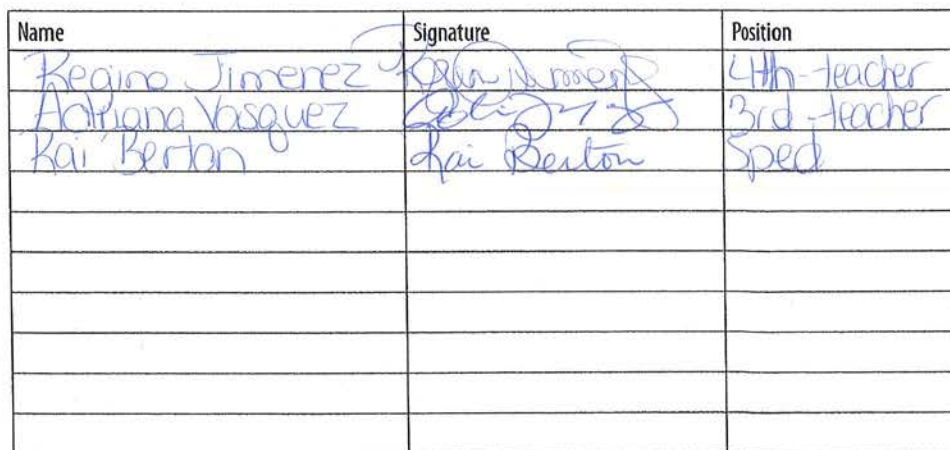 Name Signature Position
Regino Jimenez 4th-teacher
Adriana Vasquez 3rd-teacher
Kai Berton Kai Berton Sped